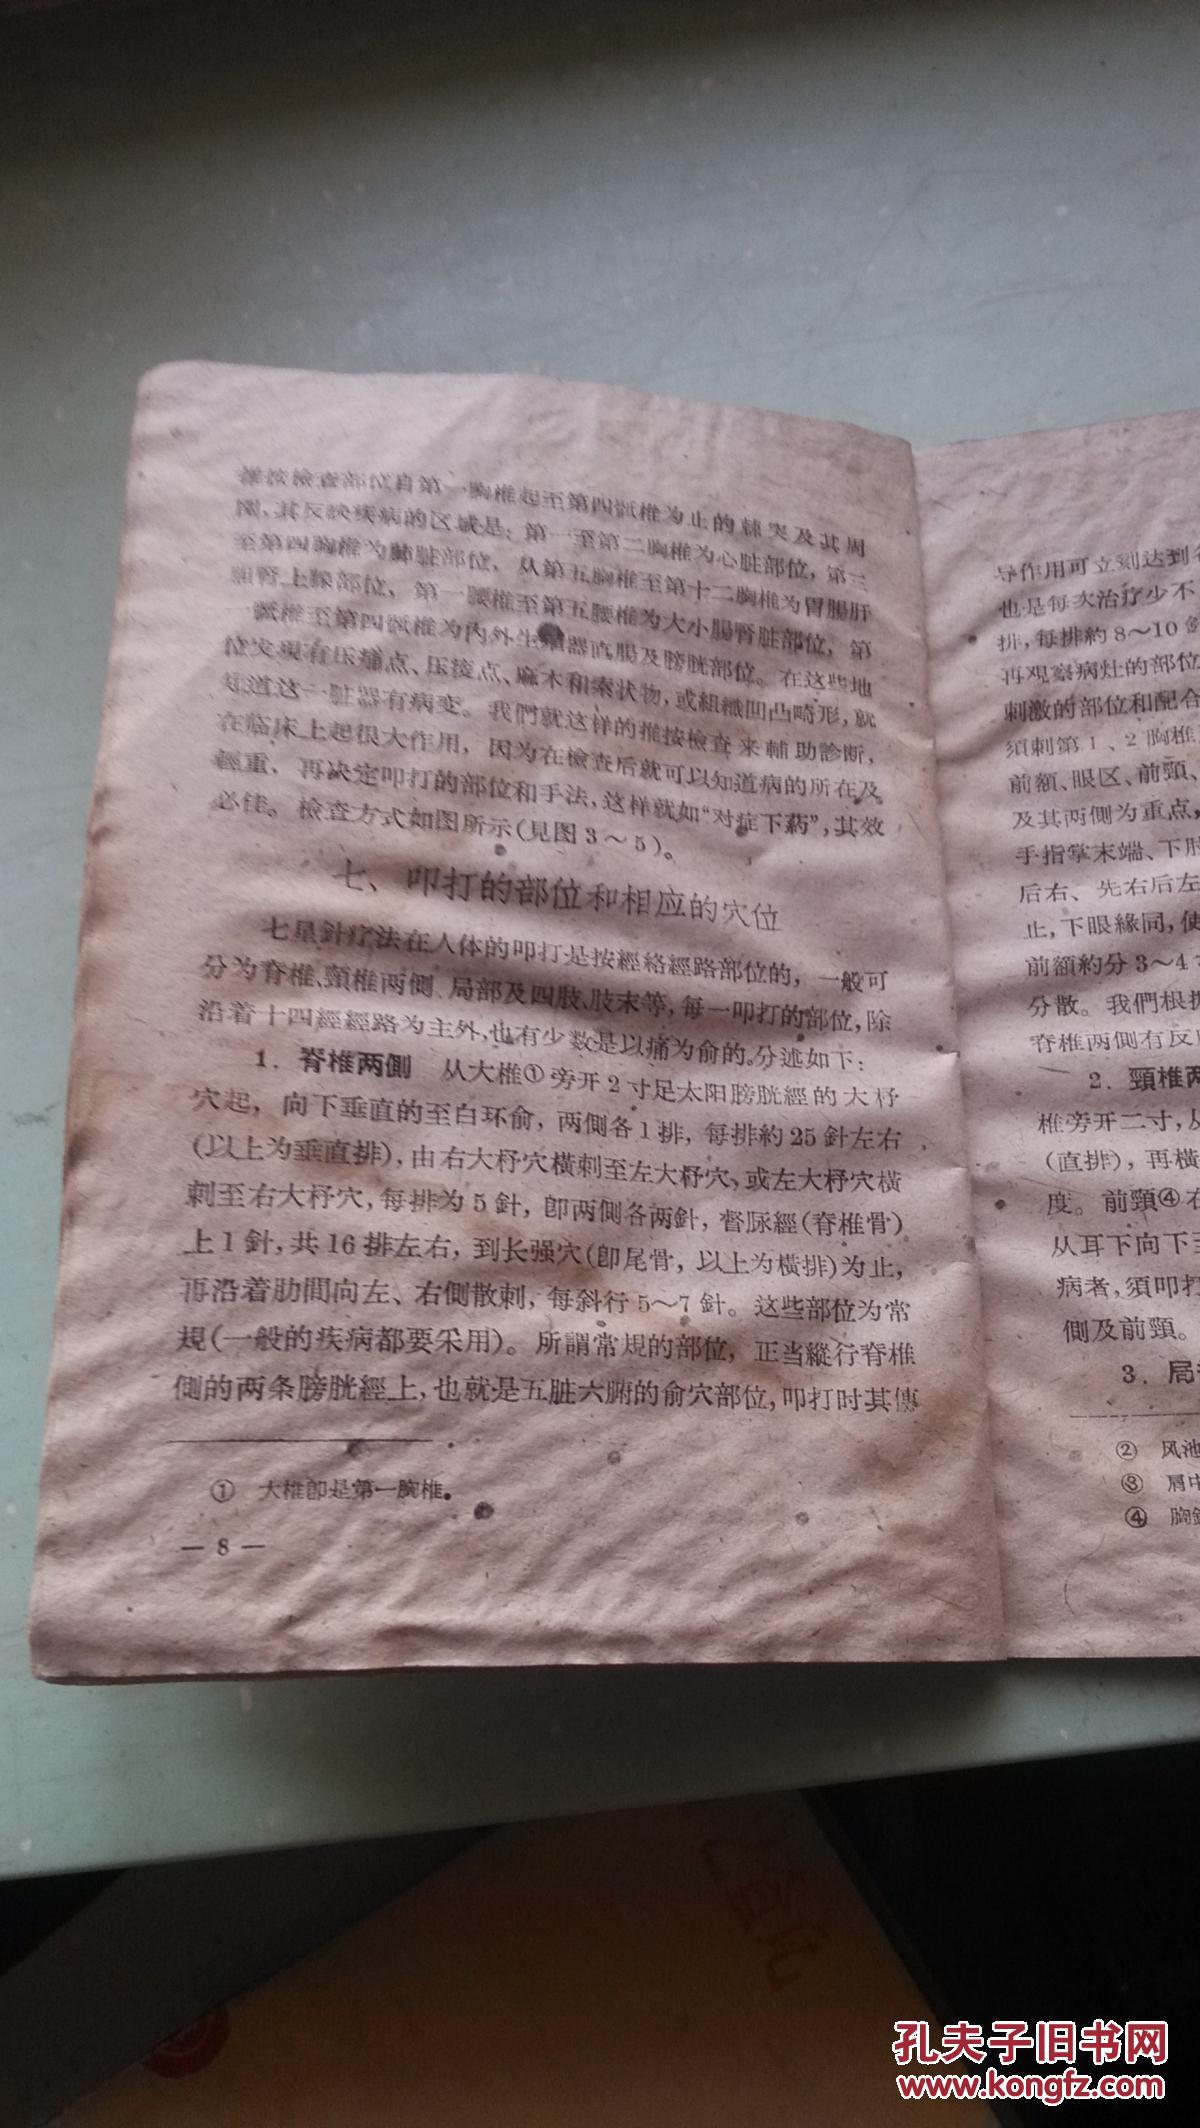 推按檢查部位自第一胸椎起至第四骶椎为止的棘突及其周
圍,其反映疾病的区域是:第一至第二胸椎为心脏部位,第三
至第四胸椎为肺脏部位,从第五胸椎至第十二胸椎为胃腸肝
胆腎上腺部位,第一腰椎至第五腰椎为大小腸腎脏部位,第
一骶椎至第四骶椎为內外生殖器直腸及膀胱部位。在这些地
位发現有压痛点、压痠点、麻木和索状物,或組織凹凸畸形,就
知道这一脏器有病变。我們就这样的推按檢查来輔助診断,
在临床上起很大作用,因为在檢查后就可以知道病的所在及
輕重,再决定叩打的部位和手法,这样就如“对症下葯”,其效
必佳。檢查方式如图所示(見图3～5)。
七、叩打的部位和相应的穴位
七星針疗法在人体的叩打是按經絡經路部位的,一般可
分为脊椎、頸椎两側、局部及四肢、肢末等,每一叩打的部位,除
沿着十四經經路为主外,也有少数是以痛为俞的。分述如下:
1. 脊椎两側 从大椎①旁开2寸足太阳膀胱經的大杼
穴起,向下垂直的至白环俞,两側各1排,每排約25針左右
(以上为垂直排),由右大杼穴橫刺至左大杼穴,或左大杼穴橫
刺至右大杼穴,每排为5針,卽两側各两針,督脉經(脊椎骨)
上1針,共16排左右,到长强穴(卽尾骨,以上为橫排)为止,
再沿着肋間向左、右側散刺,每斜行5～7針。这些部位为常
規(一般的疾病都要采用)。所謂常規的部位,正当縱行脊椎
側的两条膀胱經上,也就是五脏六腑的俞穴部位,叩打时其傳
① 大椎卽是第一胸椎。
— 8 —
导作用可立刻达到
也是每次治疗少不
排,每排約8～10
再观察病灶的部位
刺激的部位和配合
須刺第1、2胸椎
前額、眼区、前頸、
及其两側为重点,
手指掌末端、下肢
后右、先右后左
止,下眼緣同,使
前額約分3～4
分散。我們根据
脊椎两側有反
2. 頸椎两
椎旁开二寸,
(直排),再橫
度。前頸④
从耳下向下至
病者,須叩打
側及前頸。
3. 局
② 风池
③ 肩中
④ 胸
孔夫子旧书网
www.kongfz.com